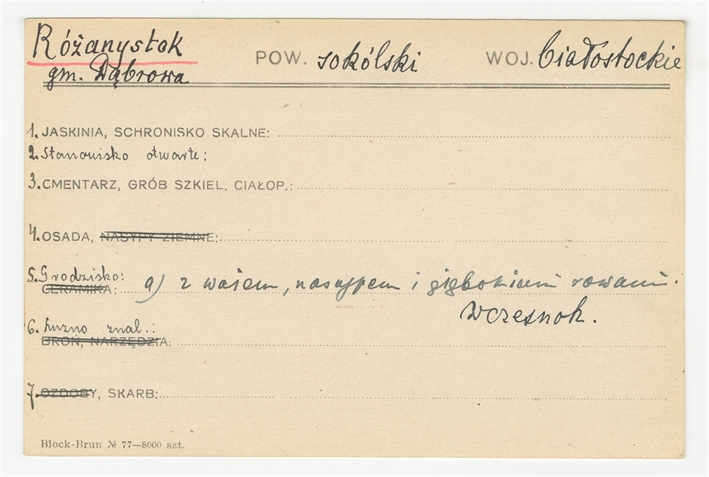 Różanystok POW. sokólski WOJ. białostockie
gm. Dąbrowa
1. JASKINIA, SCHRONISKO SKALNE:
2. Stanowisko otwarte:
3. CMENTARZ, GRÓB SZKIEL. CIAŁOP.:
4. OSADA, NASYPY ZIEMNE:
5. Grodzisko: a) z wałem, nasypem i głębokiemi rowami.
CERAMIKA: Wczesnok.
6. Luzno znal.:
BROŃ, NARZĘDZIA:
7. OZDOBY, SKARB:
Block-Brun № 77—8000 szt.